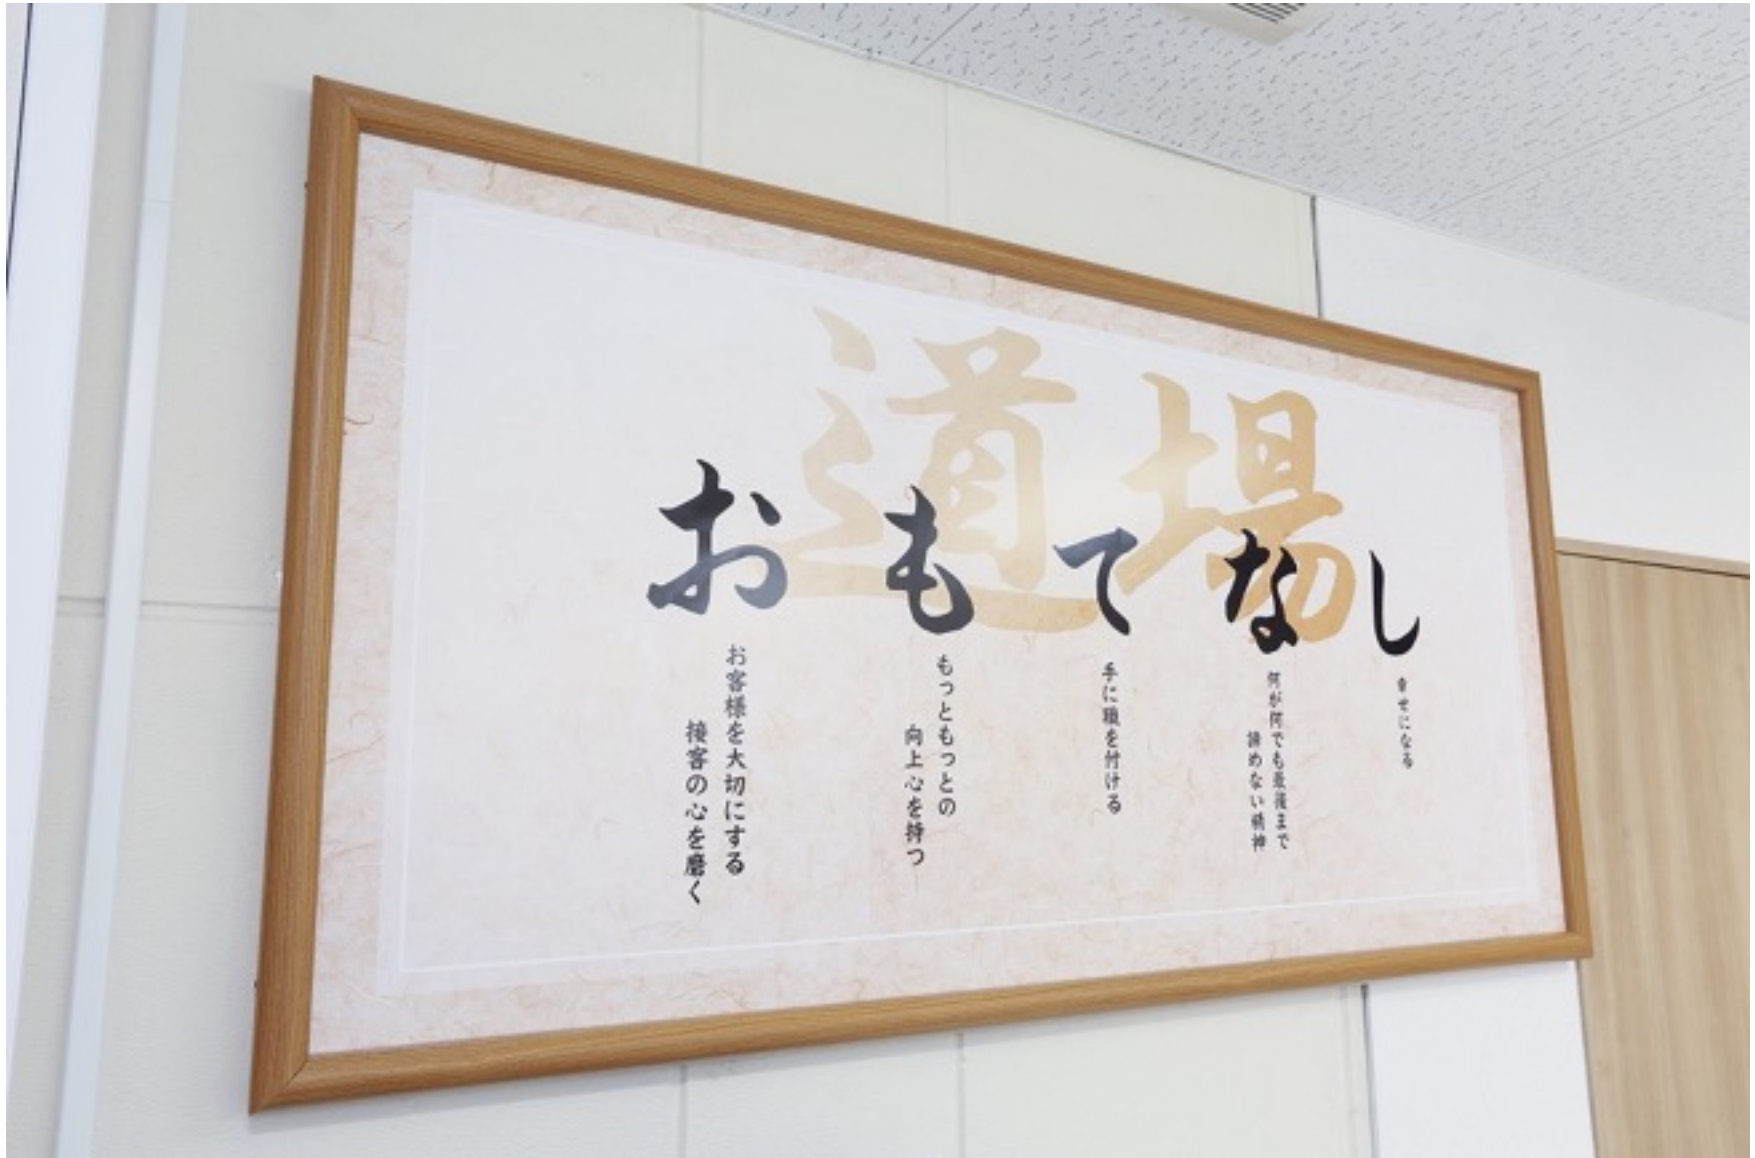 道場
おもてなし
お客様を大切にする
接客の心を磨く
もっともっとの
向上心を持つ
手に職を付ける
何が何でも最後まで
諦めない精神
幸せになる